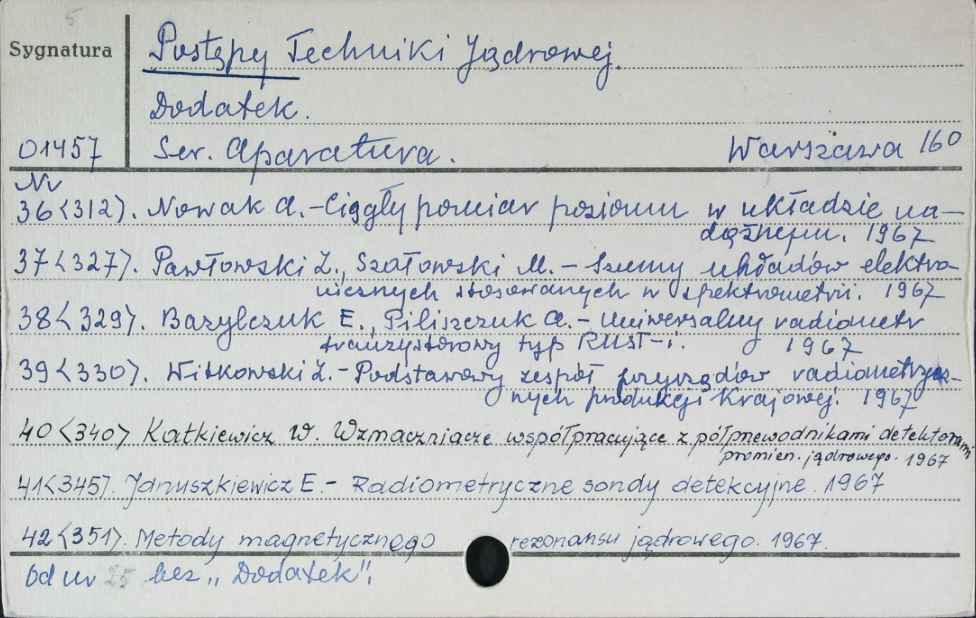 5
Sygnatura
Postępy Techniki Jądrowej.
Dodatek.
01457 Ser. Aparatura. Warszawa 160
Nr
36<312>. Nowak A. - Ciągły pomiar poziomu w układzie na-
dążnym. 1967
37<327>. Pawłowski Z., Szałowski M. - Szumy układów elektro-
nicznych stosowanych w spektrometrii. 1967
38<329>. Bazylczuk E., Piliszczuk A. - Uniwersalny radiometr
tranzystorowy typ RUST-i. 1967
39<330>. Witkowski Z. - Podstawowy zespół przyrządów radiometrycz-
nych produkcji Krajowej. 1967
40<340> Katkiewicz W. Wzmacniacze współpracujące z półprzewodnikami detektorami
promien. jądrowego. 1967
41<345>. Januszkiewicz E. - Radiometryczne sondy detekcyjne. 1967
42<351>. Metody magnetycznego rezonansu jądrowego. 1967.
Od nr 25 bez „Dodatek".